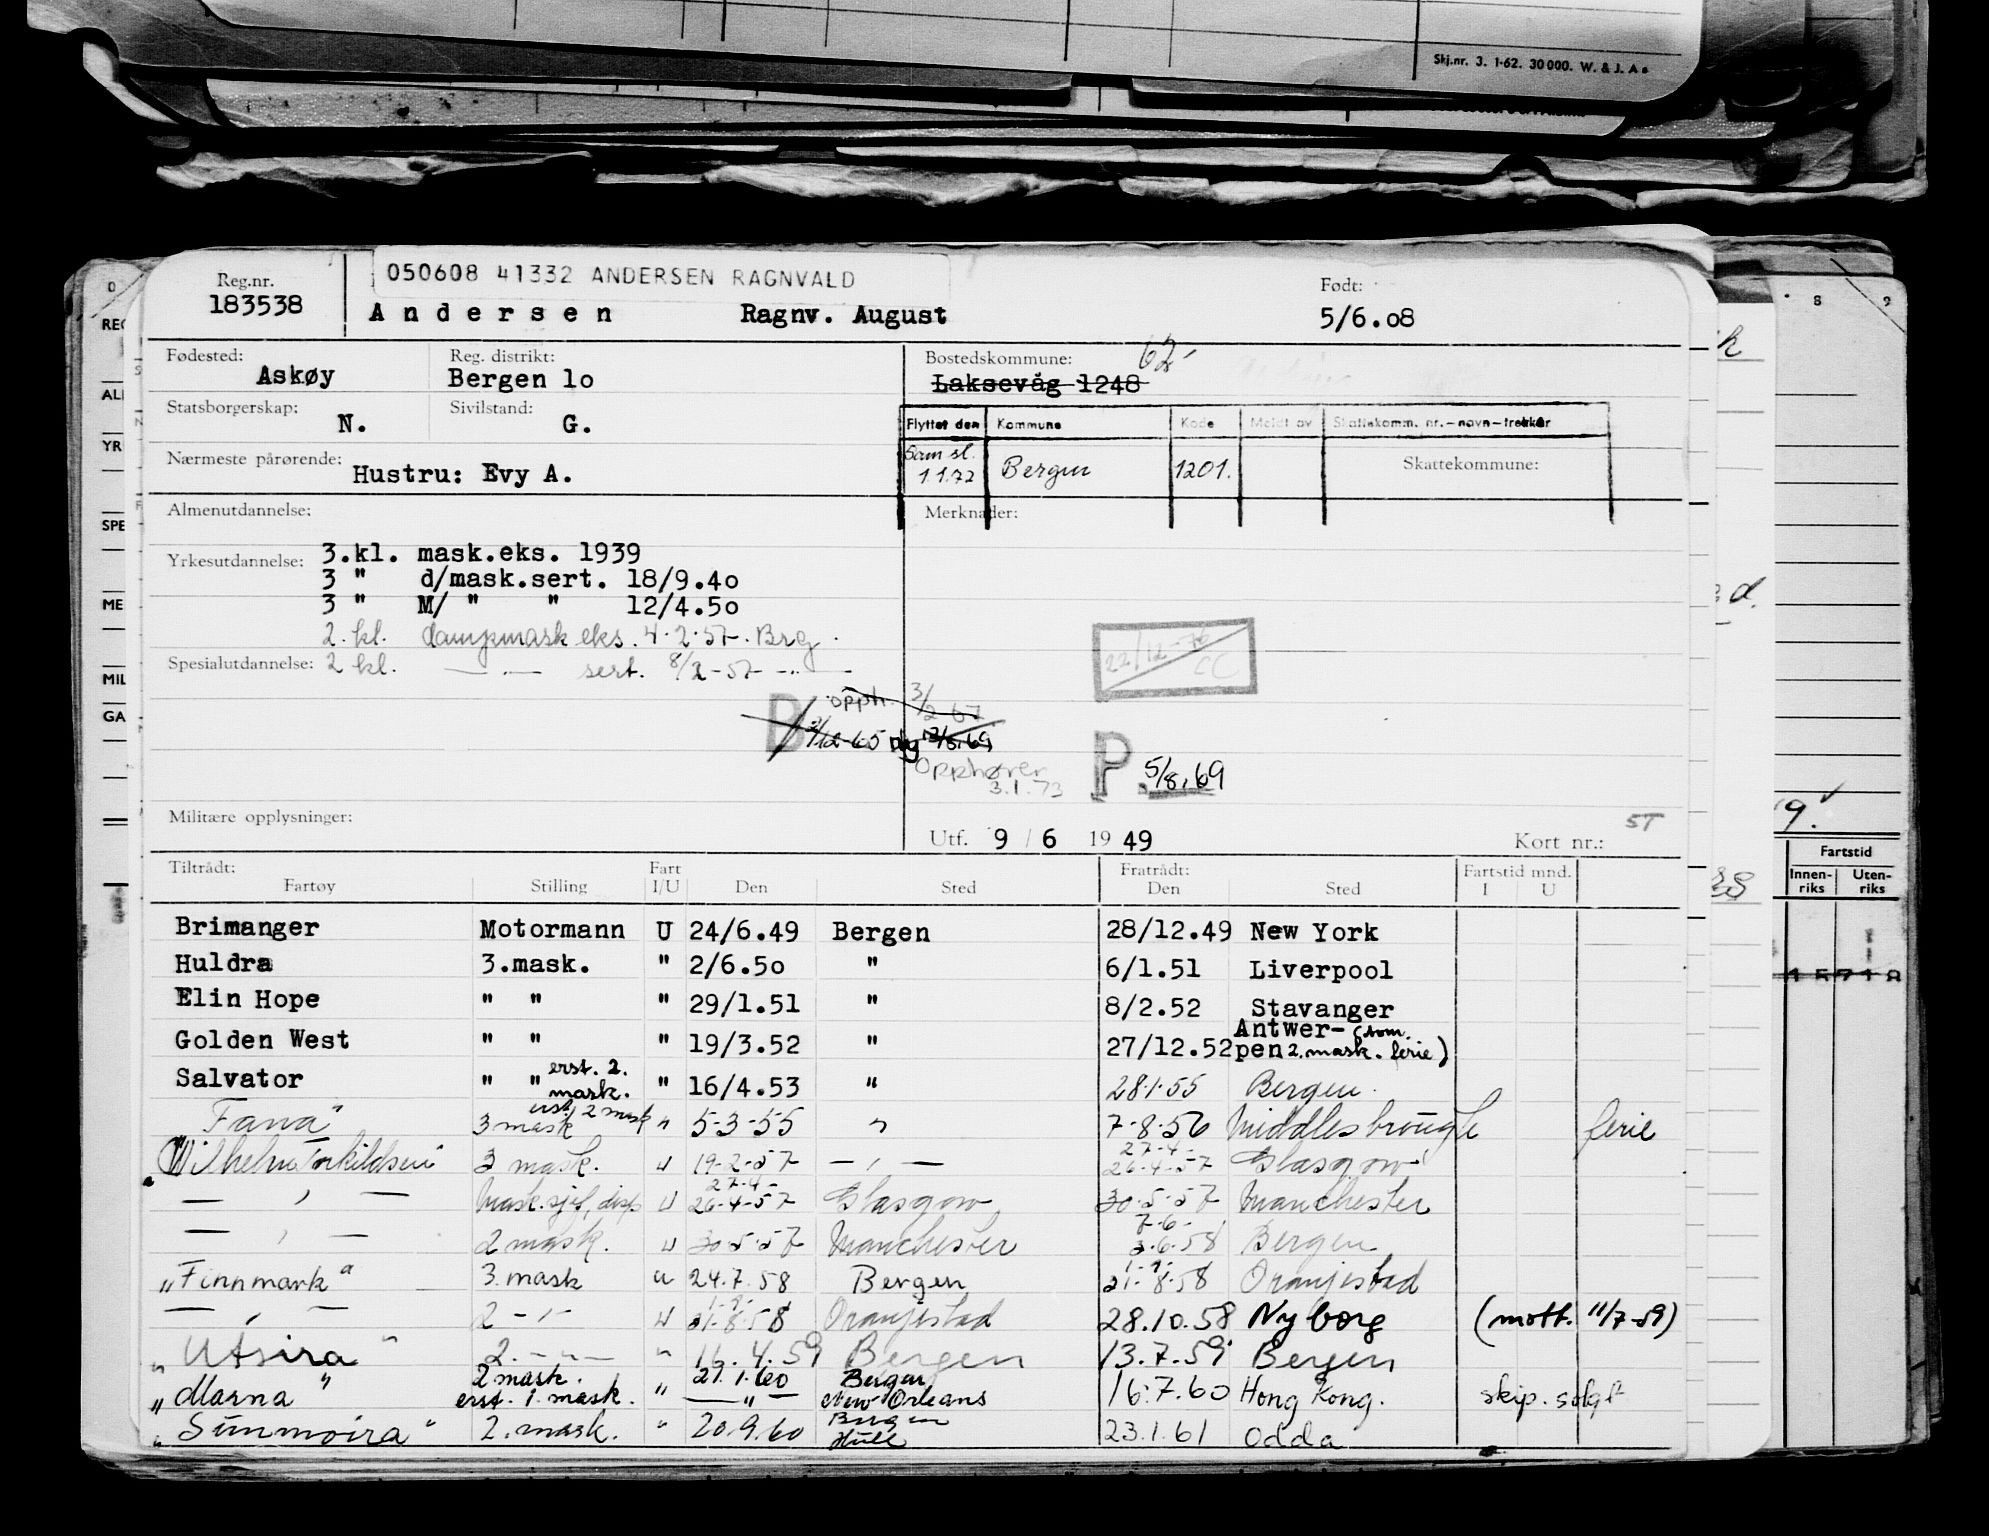 Skj.nr. 3. 1-62. 30000. W. & J. A s
Reg.nr.
183538
050608 41332 ANDERSEN RAGNVALD
Andersen Ragnv. August
Født:
5/6.08
Fødested:
Askøy
Reg. distrikt:
Bergen 1o
Bostedskommune: 62
Laksevåg 1248
Statsborgerskap:
N.
Sivilstand:
G.
Flyttet den Kommune Kode Meldt av Skattekomm. nr.-navn-trekkår
Sam sl.
1.1.72 Bergen 1201.
Skattekommune:
Nærmeste pårørende:
Hustru: Evy A.
Almenutdannelse:
Merknader:
Yrkesutdannelse: 3.kl. mask.eks. 1939
3 " d/mask.sert. 18/9.4o
3 " M/ " " 12/4.5o
2. kl. dampmask eks. 4.2.57. Brg.
Spesialutdannelse: 2 kl. — " — sert. 8/2-57 - " -
22/12-76
CC
B opph. 3/2 67
Opphører
3.1.73
P 5/8.69
Militære opplysninger:
Utf. 9 / 6 19 49
Kort nr.: 5T
Tiltrådt: Fart Fratrådt: Fartstid mnd.
Fartøy Stilling I/U Den Sted Den Sted I U
Brimanger Motormann U 24/6.49 Bergen 28/12.49 New York
Huldra 3.mask. " 2/6.5o " 6/1.51 Liverpool
Elin Hope " " " 29/1.51 " 8/2.52 Stavanger
Golden West " " " 19/3.52 " 27/12.52 Antwer-pen (som 2. mask. ferie)
Salvator " " erst. 2. mask. " 16/4.53 " 28.1.55 Bergen.
Fana" 3 mask erst. 2 mask " 5-3-55 " 7-8-56 Middlesbrough ferie
"Wilhelm Torkildsen 3 mask. U 19-2-57 — " — 27-4- 26-4-57 Glasgow
— " — Mask.sjef, disp U 27-4- 26-4-57 Glasgow 30.5.57 Manchester
— " — 2 mask. U 30.5.57 Manchester 7-6- 3.6.58 Bergen
"Finnmark" 3. mask u 24.7.58 Bergen 1-9- 31-8-58 Oranjestad
— " — 2 - " - U 1-9- 31-8-58 Oranjestad 28.10.58 Nyborg (mott. 11/7-59)
"Utsira" 2. - " - " 16.4.59 Bergen 13.7.59 Bergen
"Marna" 2 mask. erst. 1. mask. " 27.1.60 — " — Bergen New Orleans 16.7.60 Hong Kong. skip. solgt
"Sunnmøira" 2. mask. " 20.9.60 Bergen Hull 23.1.61 Odda
Fartstid
Innen-riks Uten-riks